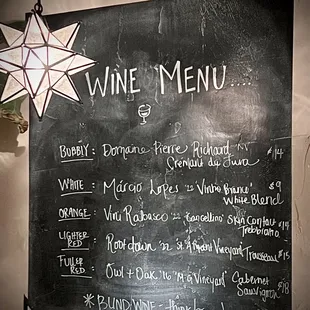 WINE MENU....
BUBBLY: Domaine Pierre Richard NV
Crémant du Jura $14
WHITE: Márcio Lopes '22 Vinho Branco $9
White Blend
ORANGE: Vini Rabasco '22 "Cancellino" Skin Contact $14
Trebbiano
LIGHTER
RED: Rootdown '22 Vineyard Trousseau $15
FULLER
RED: Owl + Oak '16 Vineyard" Cabernet
Sauvignon $18
* BLIND WINE - think